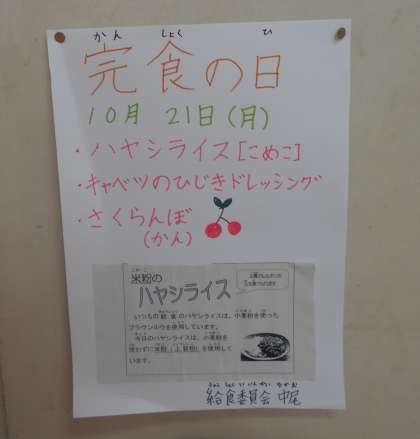 かん しょく ひ
完食の日
10月 21日(月)
・ハヤシライス[こめこ]
・キャベツのひじきドレッシング
・さくらんぼ
(かん)
米粉の
ハヤシライス
いつもの給食のハヤシライスは、小麦粉を使った
ブラウンルウを使用しています。
今日のハヤシライスは、小麦粉を
使わずに米粉(上新粉)を使用して
います。
きゅうしょく いいんかい なかお
給食委員会 中尾